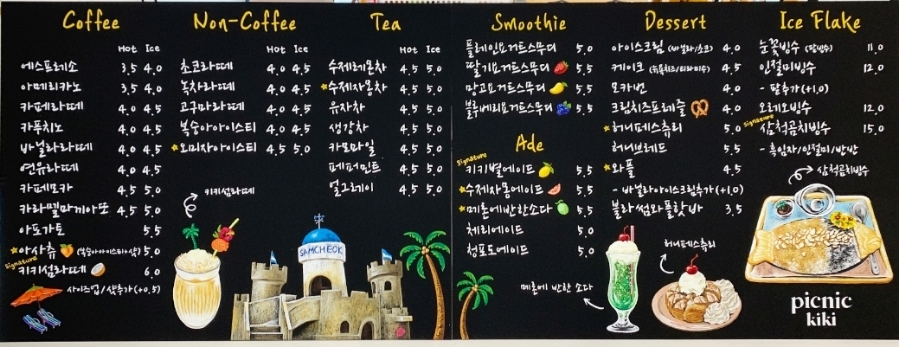 Coffee
Hot Ice
에스프레소 3.5 4.0
아메리카노 3.5 4.0
카페라떼 4.0 4.5
카푸치노 4.0 4.5
바닐라라떼 4.0 4.5
연유라떼 4.0 4.5
카페모카 4.5 5.0
카라멜마끼아또 4.5 5.0
아포가토 5.0
아샷츄 (복숭아아이스티+샷) 5.0
signature
키키섬라떼 6.0
사이즈업/샷추가(+0.5)
Non-Coffee
Hot Ice
초코라떼 4.0 4.5
녹차라떼 4.0 4.5
고구마라떼 4.0 4.5
복숭아아이스티 4.5
오미자아이스티 4.5
키키섬라떼
SAMCHEOK
Tea
Hot Ice
수제레몬차 4.5 5.0
수제자몽차 4.5 5.0
유자차 4.5 5.0
생강차 4.5 5.0
카모마일 4.5 5.0
페퍼민트 4.5 5.0
얼그레이 4.5 5.0
Smoothie
플레인요거트스무디 5.0
딸기요거트스무디 5.0
망고요거트스무디 5.0
블루베리요거트스무디 5.0
Ade
signature
키키별에이드 5.0
수제자몽에이드 5.0
메론에반한소다 5.0
체리에이드 5.0
청포도에이드 5.0
메론에 반한 소다
Dessert
아이스크림 (바닐라/초코) 4.0
케이크 4.5
모카번 4.0
크림치즈프레즐 4.0
허니페스츄리 5.0
허니브레드 5.5
와플 4.5
- 바닐라아이스크림추가(+1.0)
블랙썸와플핫바 3.5
허니페스츄리
Ice Flake
눈꽃빙수 (팥빙수) 11.0
인절미빙수 12.0
- 팥추가(+1.0)
오레오빙수 12.0
signature
삼척곰치빙수 15.0
- 흑임자/인절미/반반
삼척곰치빙수
picnic
kiki